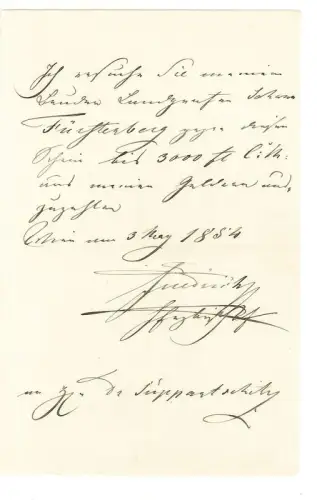 Ich ersuche Sie meinem
Bruder Landgrafen Johann
Fürstenberg gegen diesen
Schein bis 3000 fl C:M:
aus meinen Geldern aus-
zuzahlen
Wien am 3 May 1854
Friedrich
Erzbischof
an H. Dr